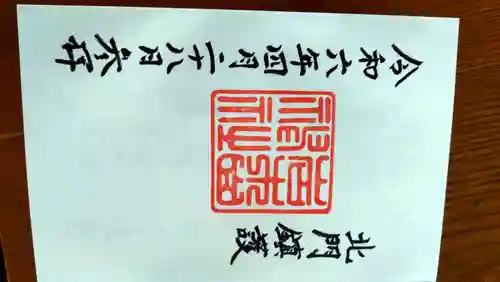 北門鎮護
令和六年四月二十八日参拝